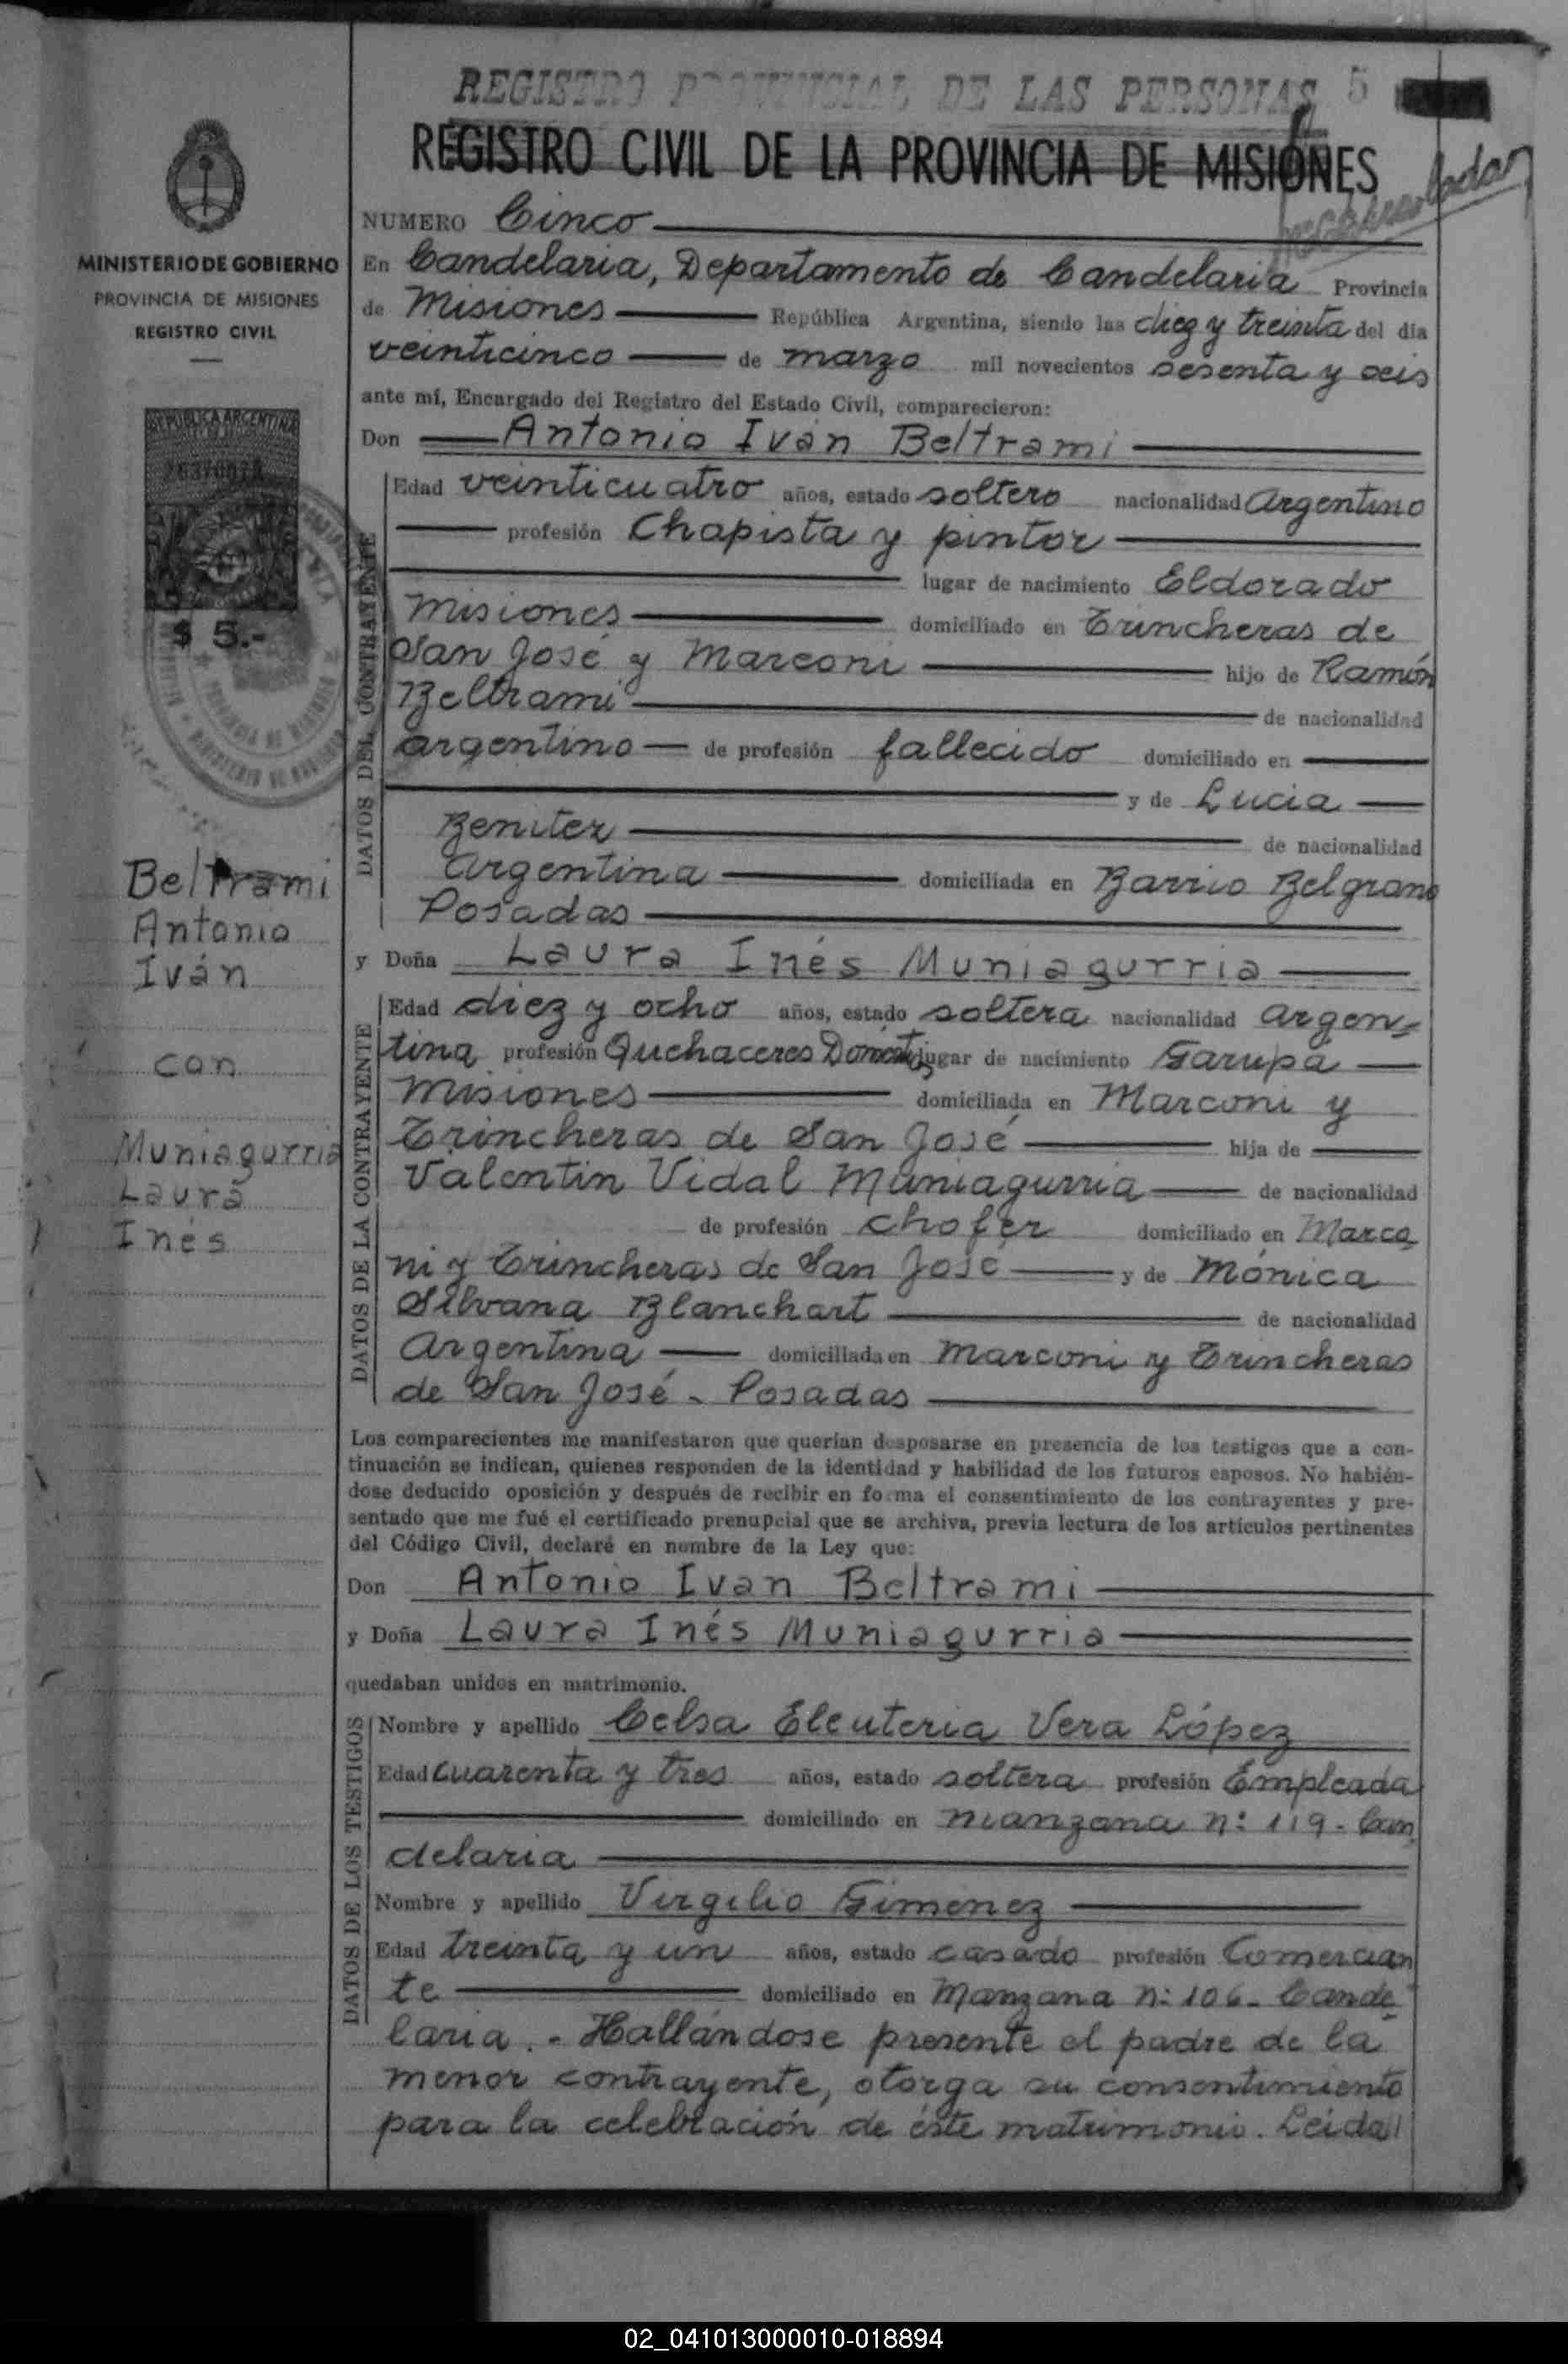 REGISTRO PROVINCIAL DE LAS PERSONAS 5
REGISTRO CIVIL DE LA PROVINCIA DE MISIONES
MINISTERIO DE GOBIERNO
PROVINCIA DE MISIONES
REGISTRO CIVIL
REPUBLICA ARGENTINA
$ 5.-
Beltrami
Antonio
Iván
con
Muniagurria
Laura
Inés
NUMERO Cinco
En Candelaria, Departamento de Candelaria Provincia
de Misiones República Argentina, siendo las diez y treinta del día
veinticinco de marzo mil novecientos sesenta y seis
ante mí, Encargado del Registro del Estado Civil, comparecieron:
Don Antonio Iván Beltrami
DATOS DEL CONTRAYENTE
Edad veinticuatro años, estado soltero nacionalidad Argentino
profesión Chapista y pintor
lugar de nacimiento Eldorado
Misiones domiciliado en Trincheras de
San José y Marconi hijo de Ramón
Beltrami de nacionalidad
argentino de profesión fallecido domiciliado en
y de Lucia
Benitez de nacionalidad
Argentina domiciliada en Barrio Belgrano
Posadas
y Doña Laura Inés Muniagurria
DATOS DE LA CONTRAYENTE
Edad diez y ocho años, estado soltera nacionalidad argen=
tina profesión Quehaceres Domésticos lugar de nacimiento Garupá
Misiones domiciliada en Marconi y
Trincheras de San José hija de
Valentin Vidal Muniagurria de nacionalidad
de profesión chofer domiciliado en Marco
ni y Trincheras de San José y de Mónica
Silvana Blanchart de nacionalidad
Argentina domiciliada en Marconi y Trincheras
de San José - Posadas
Los comparecientes me manifestaron que querían desposarse en presencia de los testigos que a con-
tinuación se indican, quienes responden de la identidad y habilidad de los futuros esposos. No habién-
dose deducido oposición y después de recibir en forma el consentimiento de los contrayentes y pre-
sentado que me fué el certificado prenupcial que se archiva, previa lectura de los artículos pertinentes
del Código Civil, declaré en nombre de la Ley que:
Don Antonio Ivan Beltrami
y Doña Laura Inés Muniagurria
quedaban unidos en matrimonio.
DATOS DE LOS TESTIGOS
Nombre y apellido Celsa Eleuteria Vera López
Edad cuarenta y tres años, estado soltera profesión Empleada
domiciliado en manzana n: 119 - Can
delaria
Nombre y apellido Virgilio Gimenez
Edad treinta y un años, estado casado profesión Comercian
te domiciliado en Manzana n: 106 - Cande
laria. - Hallándose presente el padre de la
menor contrayente, otorga su consentimiento
para la celebración de éste matrimonio. Leida
02_041013000010-018894